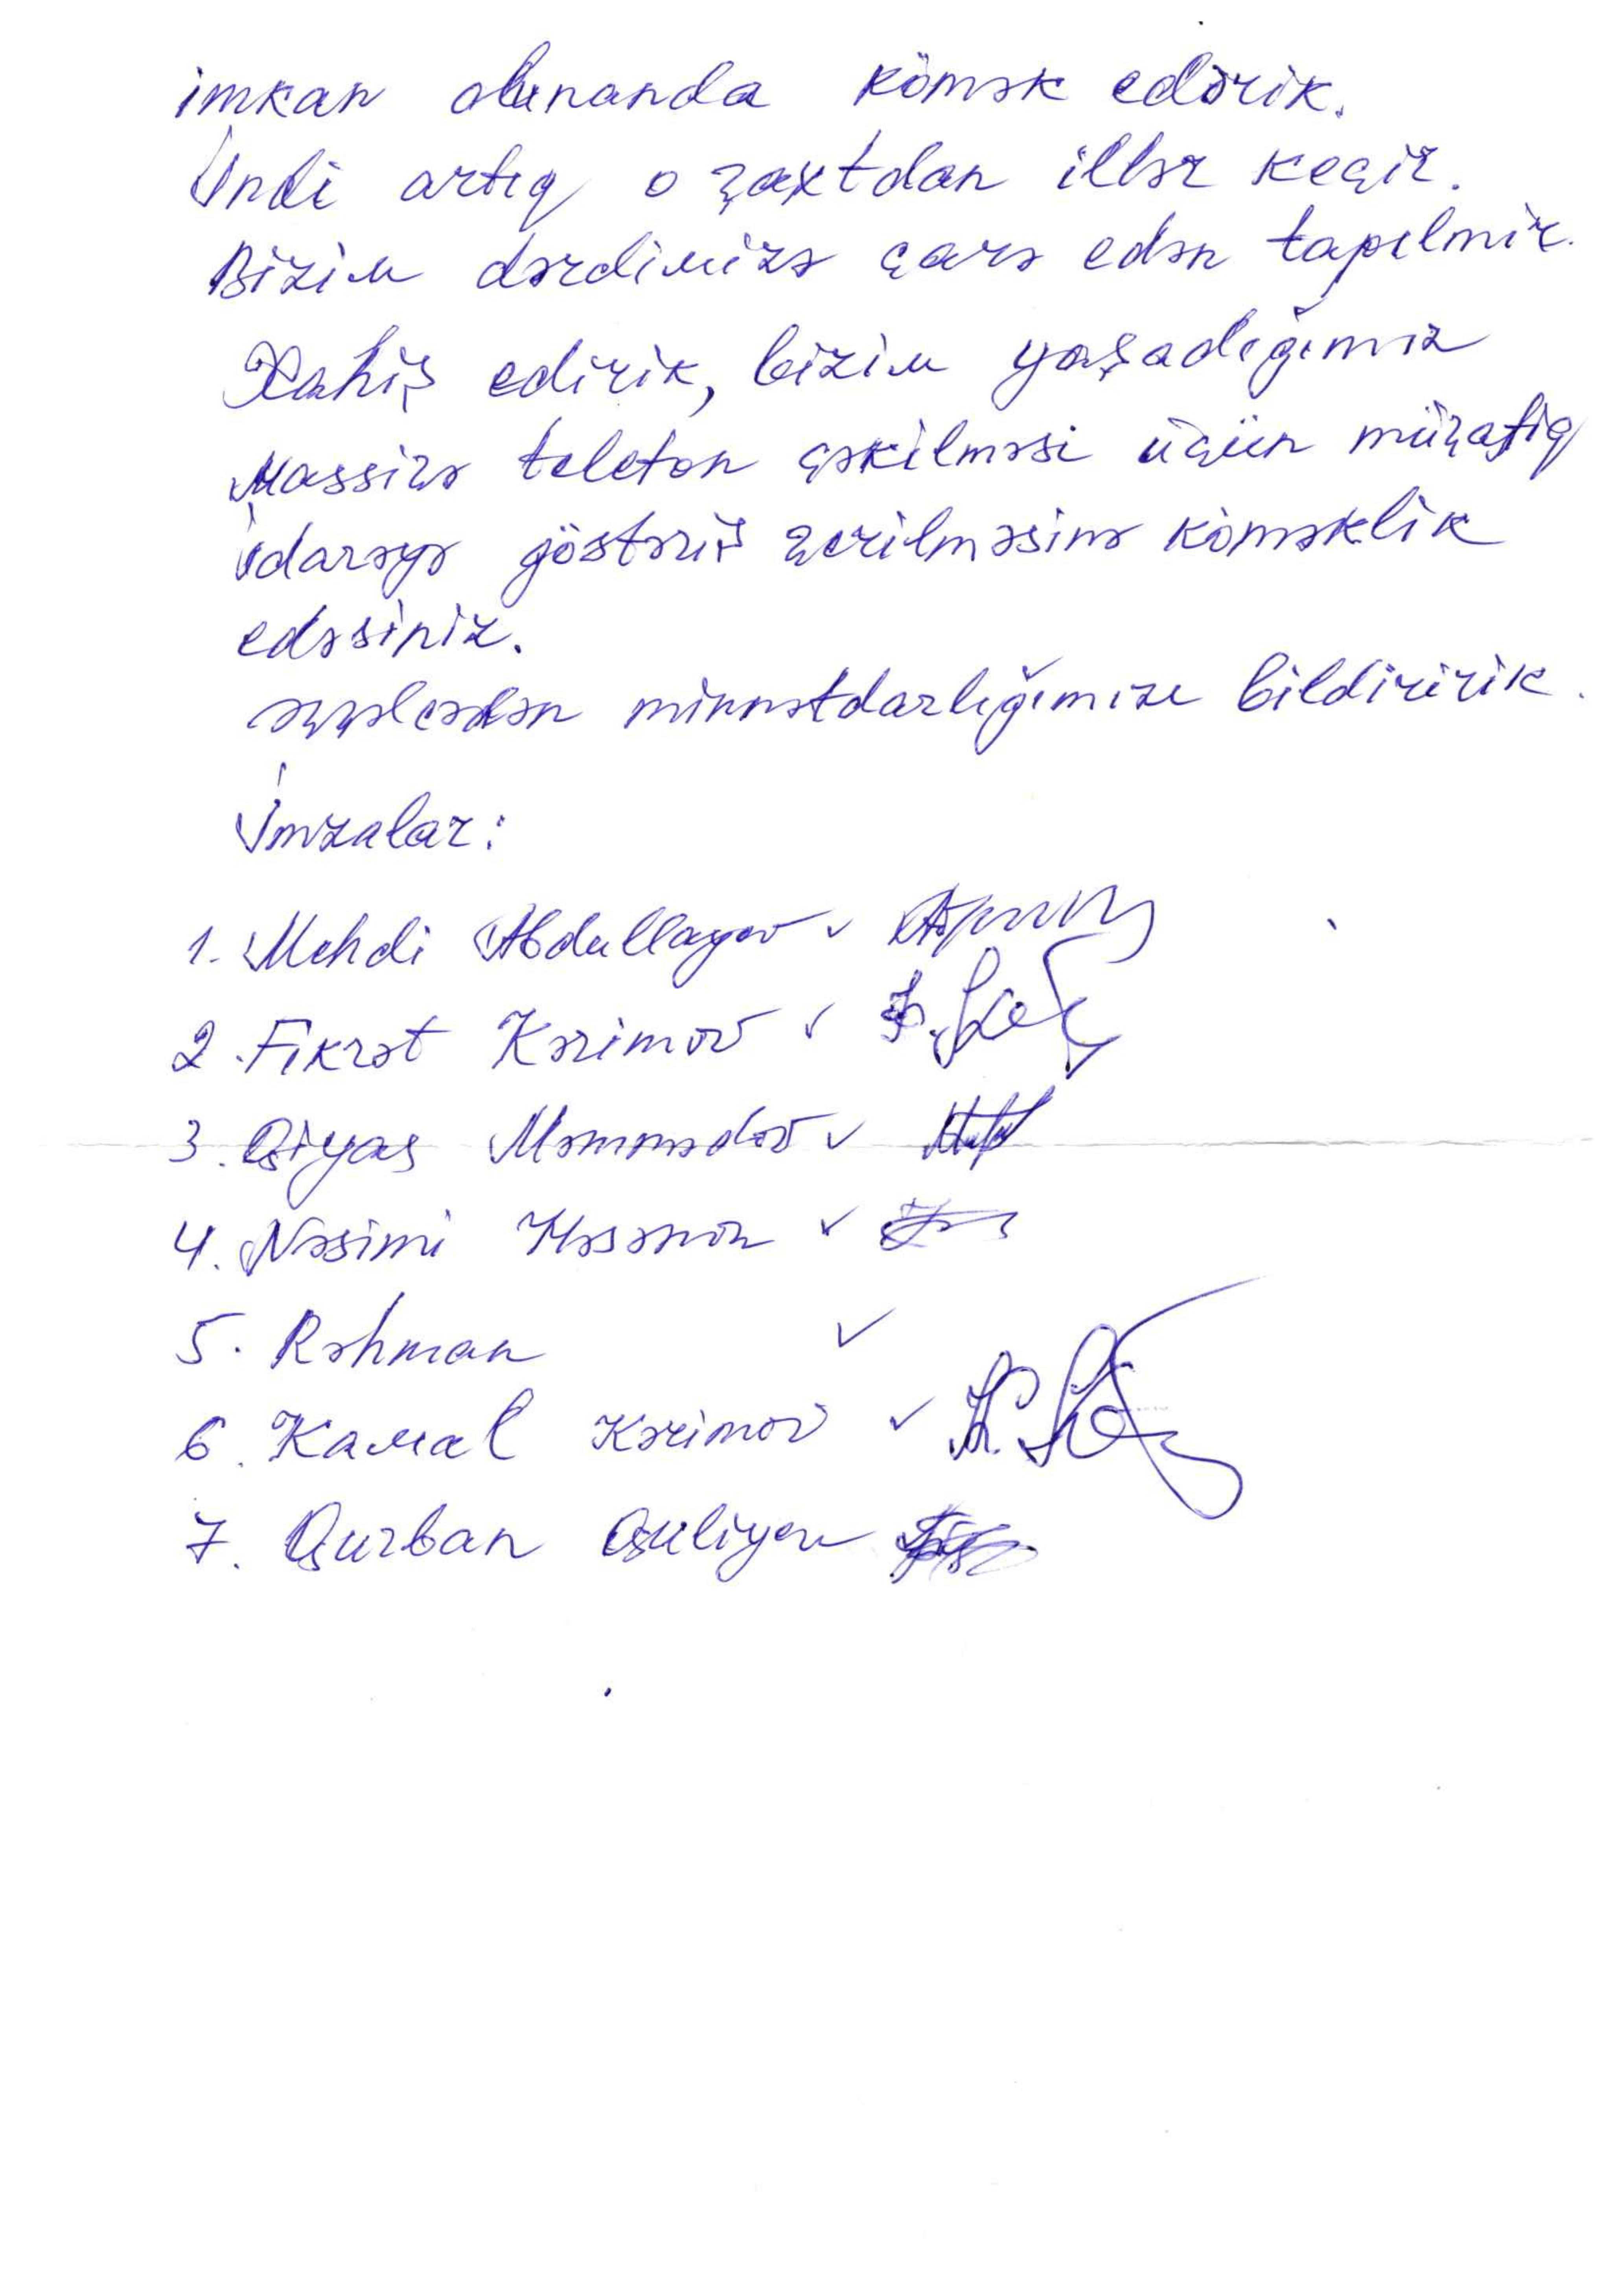 imkan olunanda kömək edərik.
İndi artıq o vaxtdan illər keçir.
Bizim dərdimizə çarə edən tapılmir.
Xahiş edirik, bizim yaşadığımız
Massivə telefon çəkilməsi üçün müvafiq
idarəyə göstəriş verilməsinə köməklik
edəsiniz.
əvvəlcədən minnətdarlığımızı bildiririk.
İmzalar:
1. Mehdi Abdullayev ✓
2. Fikrət Kərimov ✓
3. Qiyas Məmmədov ✓
4. Nəsimi Həsənov ✓
5. Rəhman ✓
6. Kamal Kərimov ✓
7. Qurban Quliyev